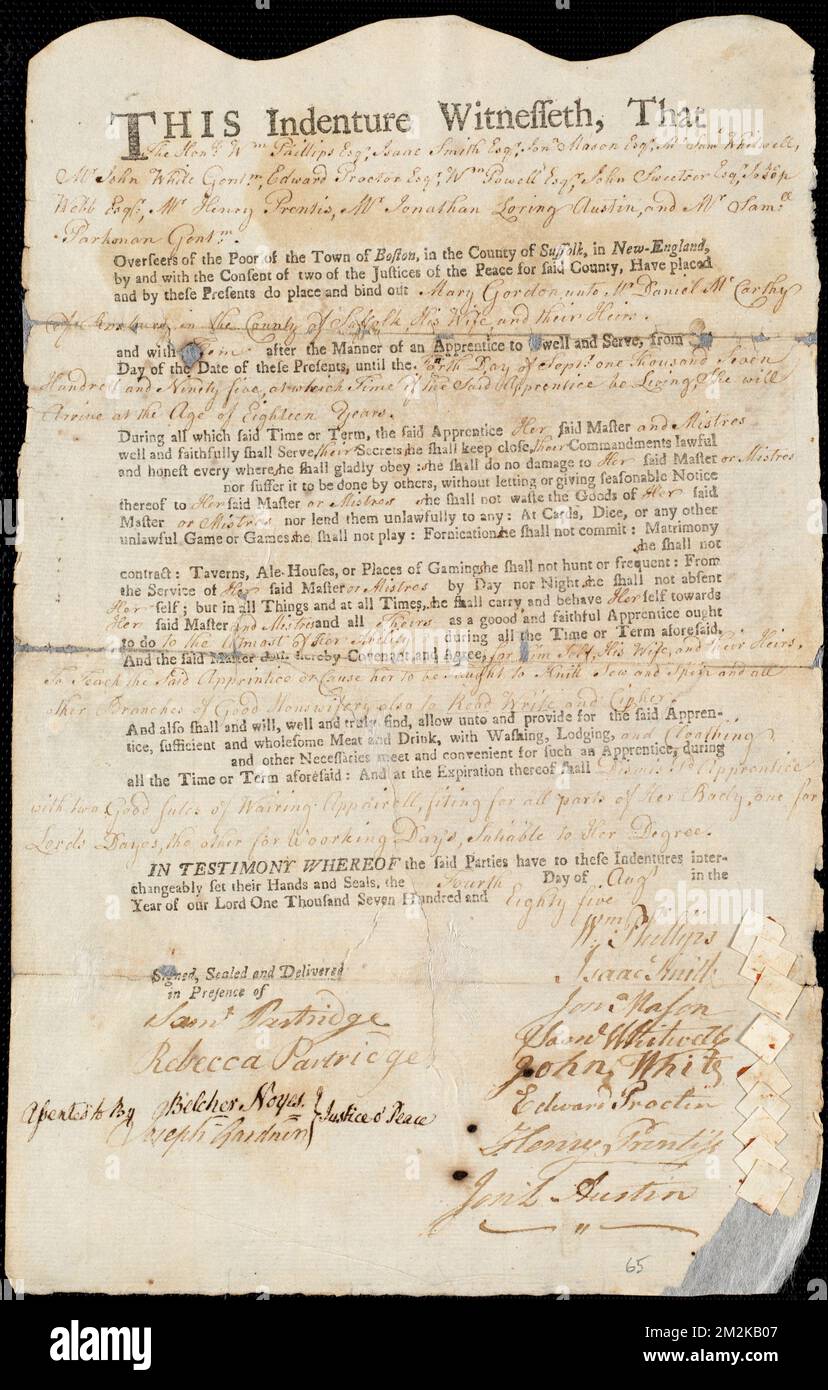 THIS Indenture Witnesseth, That
The Honle. Wm Phillips Esqr. Isaac Smith Esqr. Jona. Mason Esqr. Mr. Saml. Whitwell,
Mr John White Gentm, Edward Proctor Esqr. Wm Powell Esqr. John Sweetser Esqr. Joseph
Webb Esqr., Mr. Henry Prentis, Mr Jonathan Loring Austin, and Mr Samll
Parkman Gentm.
Overseers of the Poor of the Town of Boston, in the County of Suffolk, in New-England,
by and with the Consent of two of the Justices of the Peace for said County, Have placed
and by these Presents do place and bind out Mary Gordon unto Mr Daniel McCarthy
in the County of Suffolk His Wife, and their Heirs.
and with Them after the Manner of an Apprentice to Dwell and Serve, from
Day of the Date of these Presents, until the Day of Sept. one Thousand Seven
Hundred and Ninety five, at which Time if the Said Apprentice be Living, She will
Arrive at the Age of Eighteen Years.
During all which said Time or Term, the said Apprentice Her said Master and Mistres
well and faithfully shall Serve, their Secrets she shall keep close, their Commandments lawful
and honest every where she shall gladly obey : she shall do no damage to Her said Master or Mistres
nor suffer it to be done by others, without letting or giving seasonable Notice
thereof to Her said Master or Mistres she shall not waste the Goods of Her said
Master or Mistres nor lend them unlawfully to any : At Cards, Dice, or any other
unlawful Game or Games she shall not play : Fornication she shall not commit : Matrimony
she shall not
contract : Taverns, Ale-Houses, or Places of Gaming she shall not hunt or frequent : From
the Service of Her said Master or Mistres by Day nor Night she shall not absent
Her self ; but in all Things and at all Times, she shall carry and behave Her self towards
Her said Master and Mistres and all Theirs as a goood and faithful Apprentice ought
to do to the Utmost of Her Ability during all the Time or Term aforesaid.
And the said Master doth hereby Covenant and Agree, for Him Self, His Wife, and their Heirs,
To Teach the Said Apprentice or Cause her to be taught to Knitt Sew and Spin and all
other Branches of Good Houswifery also to Read Write and Cipher.
And also shall and will, well and truly find, allow unto and provide for the said Appren-
tice, sufficient and wholesome Meat and Drink, with Washing, Lodging, and Cloathing
and other Necessaries meet and convenient for such an Apprentice, during
all the Time or Term aforesaid : And at the Expiration thereof shall Dismis sd Apprentice
with two Good sutes of Wairing Appairell, fiting for all parts of Her Body, one for
Lords Dayes, the other for Woorking Days, Sutiable to Her Degree.
IN TESTIMONY WHEREOF the said Parties have to these Indentures inter-
changeably set their Hands and Seals, the Fourth Day of Augt in the
Year of our Lord One Thousand Seven Hundred and Eighty five
Wm Phillips
Signed, Sealed and Delivered
in Presence of
Isaac Smith
Jona Mason
Saml Partridge
Saml Whitwell
Rebecca Partridge
John White
Edward Proctor
Asented to By Belcher Noyes. } Justice o' Peace
Joseph Gardner
Henry Prentiss
Jon L Austin
65
alamy
Image ID: 2M2KB07
www.alamy.com